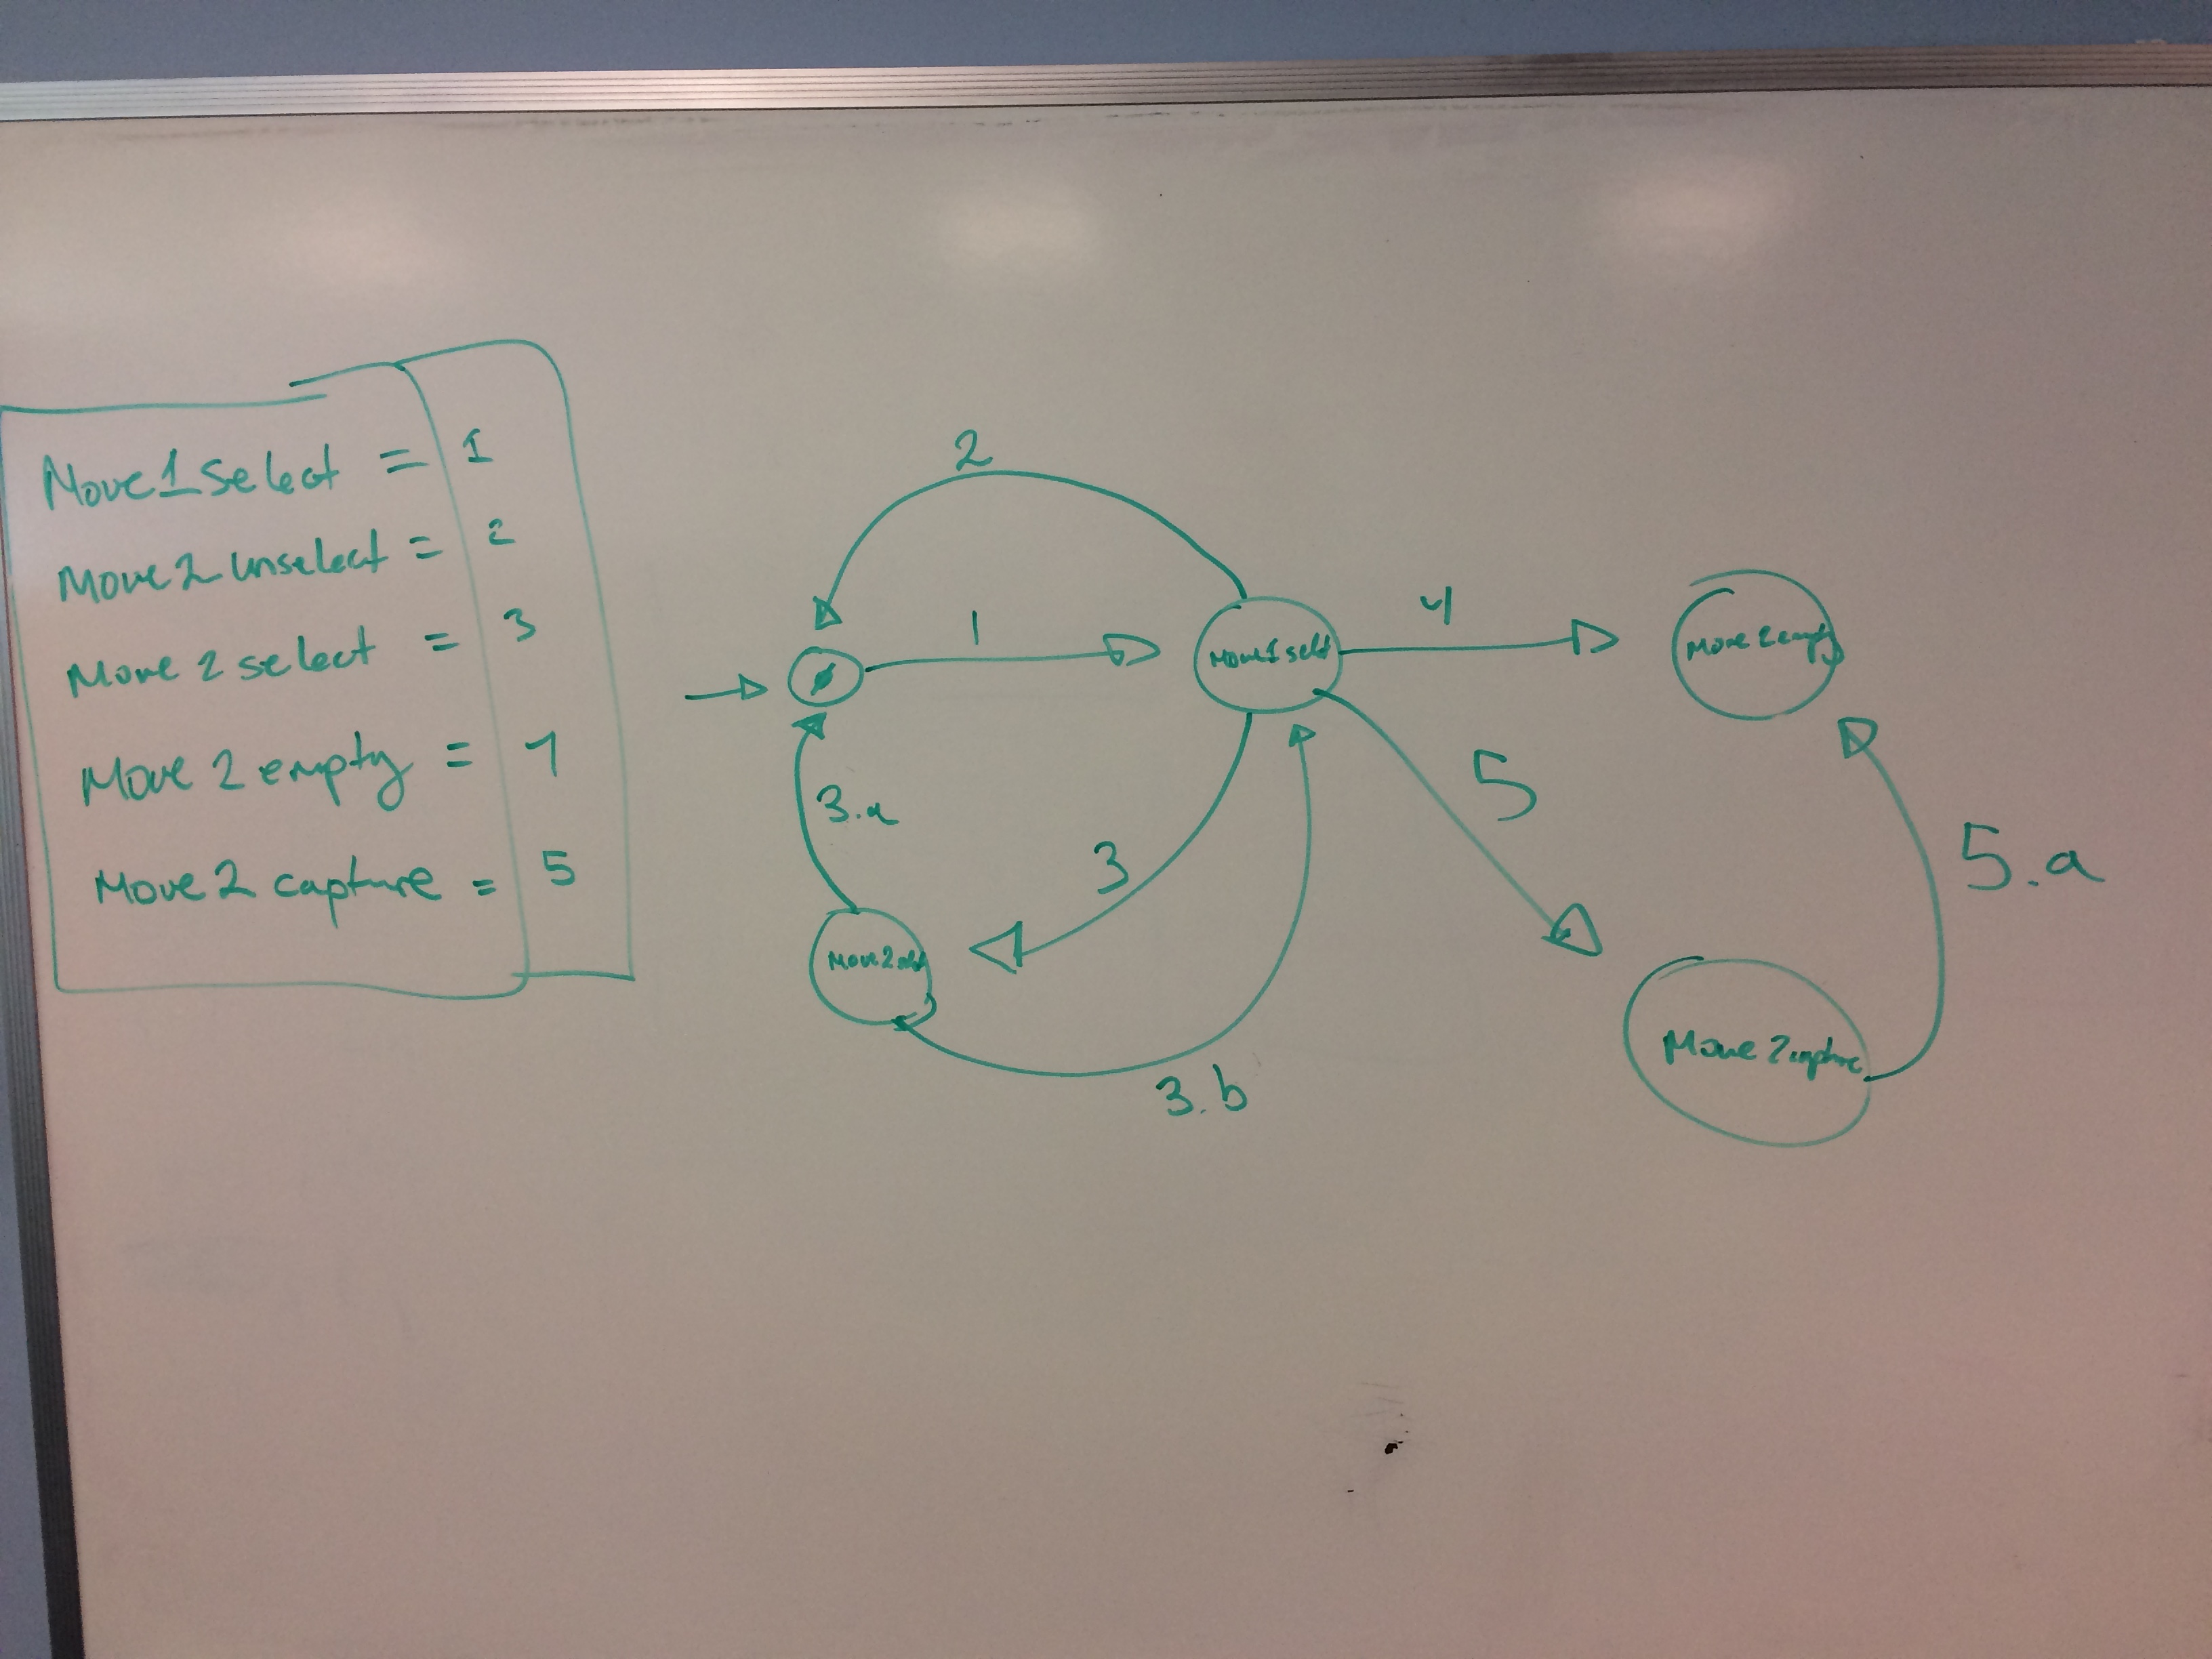 Move1select = 1
Move2unselect = 2
Move 2 select = 3
Move 2 empty = 4
Move 2 capture = 5
2
1
4
ø
Move1
Move 2 empty
5
3.a
3
5.a
Move2
Move 2 capture
3.b